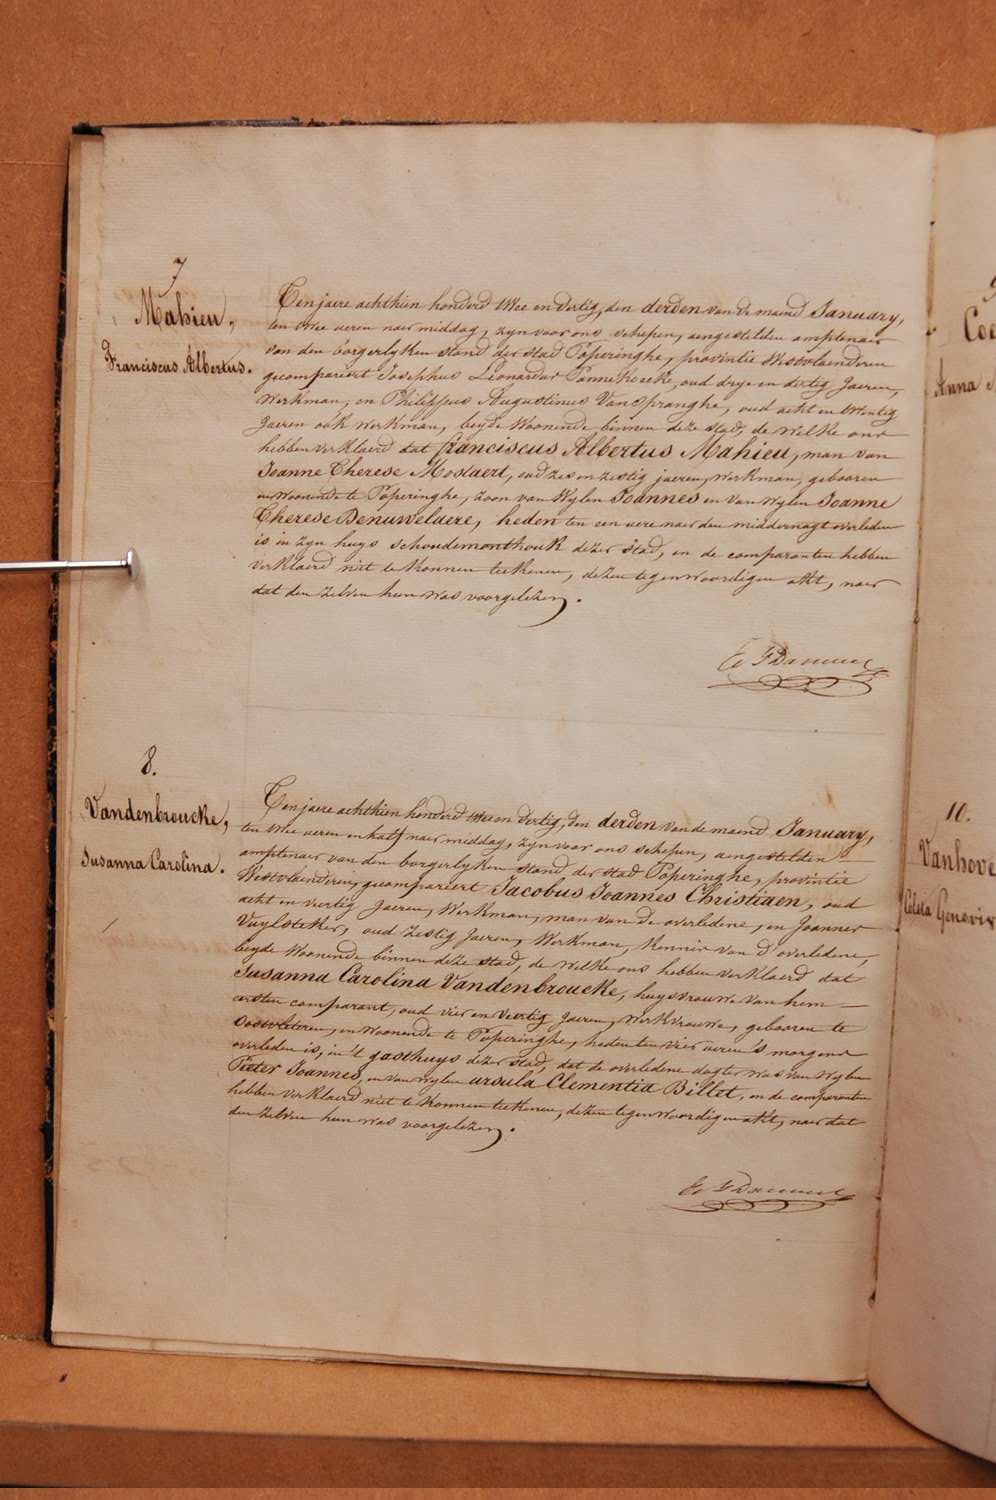 7
Mahieu,
Franciscus Albertus.
Ten jaere achthien honderd twee en dertig, den derden van de maend January,
ten twee ueren naer middag, zyn voor ons schepen, aengestelden amptenaer
van den borgerlyken stand der stad Poperinghe, provintie Westvlaenderen
gecompareert Josephus Leonardus Pannekoecke, oud drye en dertig Jaeren,
Werkman, en Philippus Augustinus Vanspranghe, oud acht en twintig
Jaeren ook werkman, beyde Woonende binnen deze stad, de welke ons
hebben verklaerd dat franciscus Albertus Mahieu, man van
Joanne Therese Mostaert, oud zes en zestig jaeren, werkman, gebooren
en woonende te Poperinghe, zoon van Wylen Joannes en van wylen Joanne
Therese Denuwelaere, heden ten een uere naer den middernagt overleden
is in zyn huys schoudemonthouk dezer stad, en de comparanten hebben
verklaerd niet te konnen teekenen, dezen tegenwoordigen akt, naer
dat den zelven hun was voorgelezen.
8.
Vandenbroucke,
Susanna Carolina.
Ten jaere achthien honderd twee en dertig, den derden van de maend January,
ten twee ueren en half naer middag, zyn voor ons schepen, aengestelden
amptenaer van den borgerlyken stand der stad Poperinghe, provintie
Westvlaenderen, gecompareert Jacobus Joannes Christiaen, oud
acht en viertig Jaeren, Werkman, man van de overledene, en Joannes
Vuylsteker, oud zestig Jaeren, Werkman, kennis van d'overledene,
beyde Woonende binnen deze stad, de welke ons hebben verklaerd dat
Susanna Carolina Vandenbroucke, huysvrouwe van hem
eersten comparant, oud vier en veertig Jaeren, werkvrouwe, gebooren te
Oostvleteren, en woonende te Poperinghe, heden ten vier ueren 's morgens
overleden is, in 't gasthuys dezer stad, dat de overledene dogter was van Wylen
Pieter Joannes, en van wylen ursula Clementia Billet, en de comparanten
hebben verklaerd niet te konnen teekenen, dezen tegenwoordigen akt, naer dat
den zelven hun was voorgelezen.
Anna
10.
Vanhove